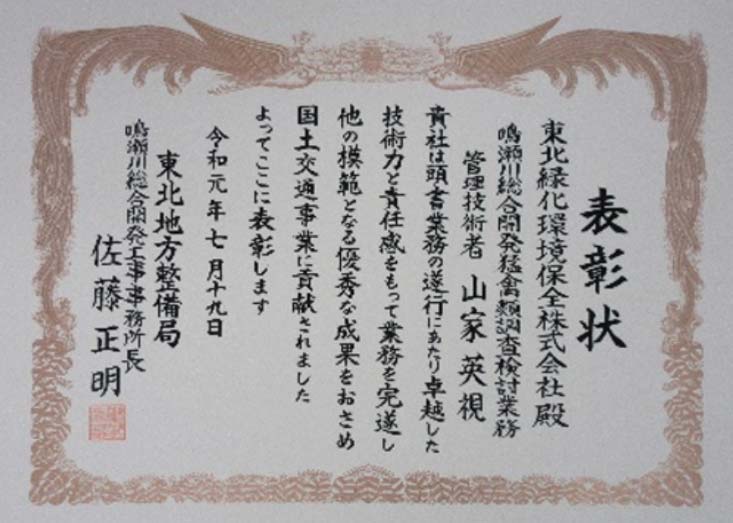 表彰状
東北緑化環境保全株式会社殿
鳴瀬川総合開発猛禽類調査検討業務
管理技術者 山家英視
貴社は頭書業務の遂行にあたり卓越した
技術力と責任感をもって業務を完遂し
他の模範となる優秀な成果をおさめ
国土交通事業に貢献されました
よってここに表彰します
令和元年七月十九日
東北地方整備局
鳴瀬川総合開発工事事務所長
佐藤正明